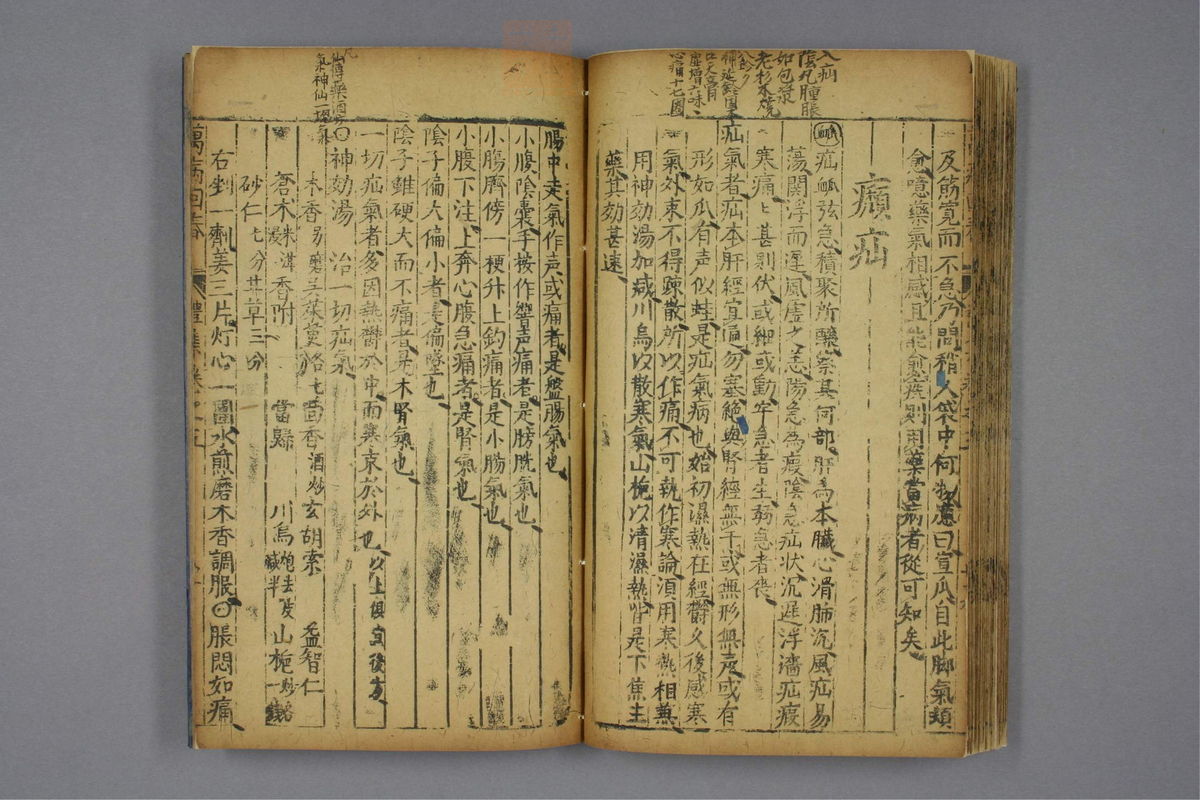 入疝
陰丸腫脹
如包漿
老杉木燒
口天膏
心痛十七國
及筋寬而不急乃問稍入袋中何物應曰宣瓜自此脚氣頓
愈噫藥氣相感且能愈疾則用藥當病者從可知矣
癲疝
脈 疝脈弦急積聚所釀察其何部肝為本臟心滑肺沉風疝易
蕩關浮而遲風虛之恙陽急為瘕陰急疝状沉遲浮濇疝瘕
寒痛〻甚則伏或細或動牢急者生弱急者喪
疝氣者疝本肝經宜通勿塞絕與腎經無干或無形無声或有
形如瓜有声似蛙是疝氣病也始初濕熱在經欝久後感寒
氣外束不得踈散所以作痛不可執作寒論須用寒熱相兼
用神効湯加减川烏以散寒氣山梔以清濕熱皆是下焦主
藥其効甚速
腸中走氣作声或痛者是盤腸氣也
小腹陰囊手按作響声痛者是膀胱氣也
小膓臍傍一梗升上釣痛者是小腸氣也
小腹下注上奔心腹急痛者是腎氣也
陰子偏大偏小者是偏墜也
陰子雖硬大而不痛者是木腎氣也
一切疝氣者多因熱欝於中而寒束於外也以上俱宜後方
神効湯 治一切疝氣
木香另磨 吴茱萸 茴香酒炒 玄胡索 益智仁
蒼木米泔浸 香附 當歸 川烏炮去皮减半 山梔炒
砂仁七分 甘草三分
右剉一劑姜三片灯心一團水煎磨木香調服〇脹悶如痛
萬病回春